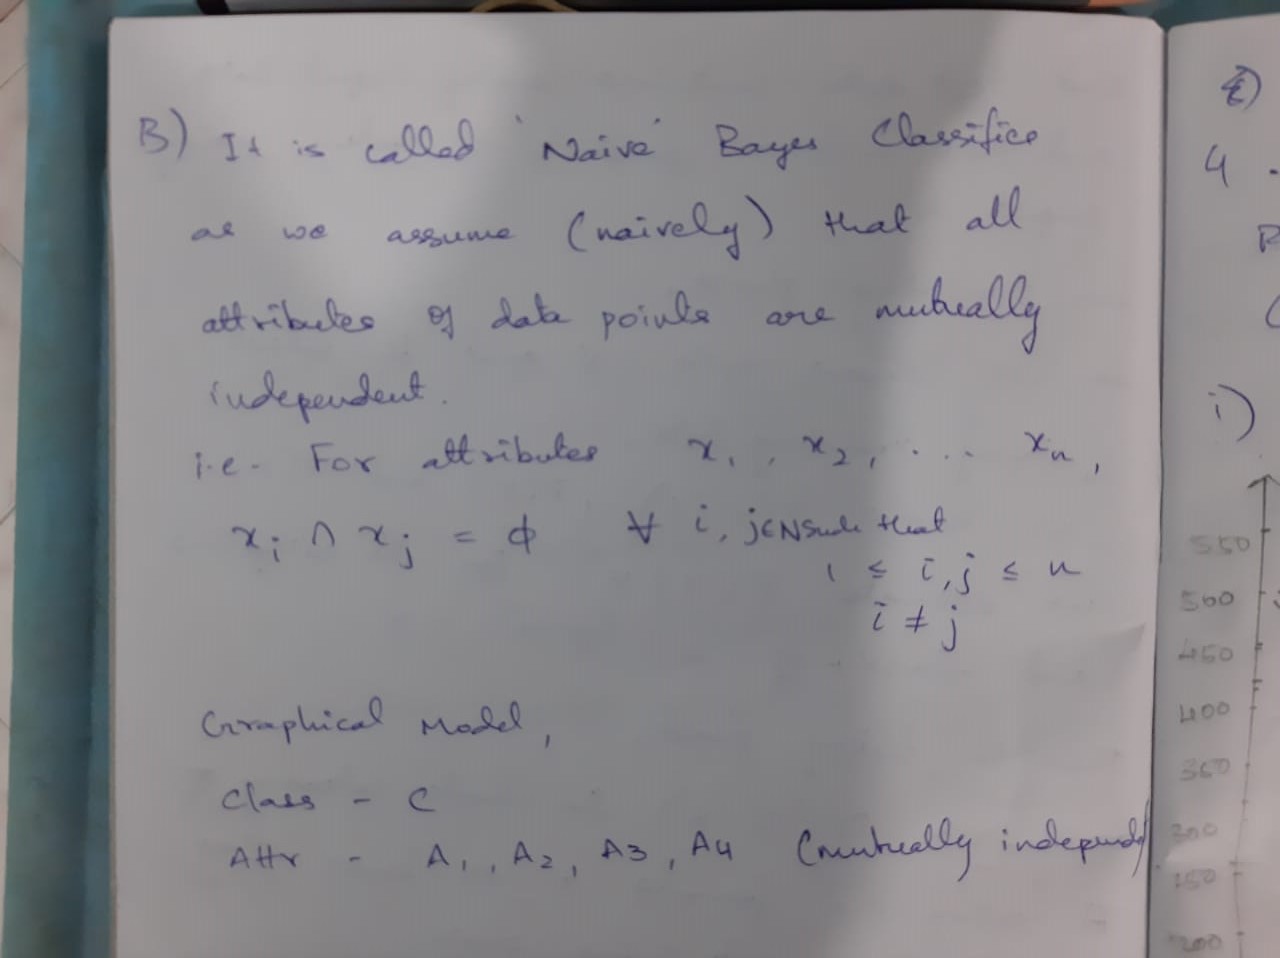 B) It is called 'Naive' Bayes Classifier
as we assume (naively) that all
attributes of data points are mutually
independent.
i.e. For attributes x1, x2, ... xn,
xi ∩ xj = ϕ ∀ i, j∈N such that
1 ≤ i, j ≤ n
i ≠ j
Graphical Model,
Class - C
Attr - A1, A2, A3, A4 (mutually
4
i)
550
500
450
400
300
200